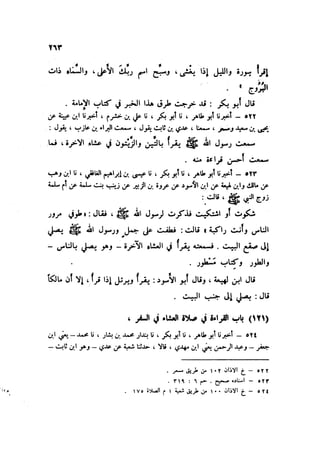 ٢٦٣
إقرأ سورة والليل إذا يغشى ، وسبح اسم ربك الأعلى ، والسماء ذات
البروج » .
قال أبو بكر : قد خرجت طرق هذا الخبر في كتاب الإمامة .
٥٢٢ – أخبرنا أبو طاهر ، نا أبو بكر ، نا علي بن خشرم ، أخبرنا ابن عيينة عن
يحيى بن سعيد ومسعر ، سمعا عدي بن ثابت يقول ، سمعت البراء بن عازب ، يقول :
سمعت رسول الله ﷺ يقرأ بالتين والزيتون في عشاء الآخرة ، فما
سمعت أحسن قراءة منه .
٥٢٣ – أخبرنا أبو طاهر ، نا أبو بكر ، نا عيسى بن إبراهيم الغافقي ، نا ابن وهب
عن مالك وابن لهيعة عن أبي الأسود عن عروة بن الزبير عن زينب بنت أبي سلمة عن أم سلمة
زوج النبي ﷺ ، قالت :
شكوت أو اشتكيت فذكرت لرسول الله ﷺ ، فقال : « طوفي من وراء
الناس وأنت راكبة » قالت : فطفت على جمل ورسول الله ﷺ يصلي
إلى صقع البيت . فسمعته يقرأ في العشاء الآخرة – وهو يصلي بالناس –
والطور وكتاب مسطور .
قال ابن لهيعة ، وقال أبو الأسود : يقرأ ويرتل إذا قرأ ، إلا أن مالكاً
قال : يصلي إلى جنب البيت .
(١٢١) باب القراءة في صلاة العشاء في السفر ،
٥٢٤ – أخبرنا أبو طاهر ، نا أبو بكر ، نا محمد بن بشار ، نا محمد – يعني ابن
جعفر – وعبد الرحمن يعني ابن مهدي ، قالا ، حدثنا شعبة عن عدي – وهو ابن ثابت –
٥٢٢ – خ الأذان ١٠٢ من طريق مسعر .
٥٢٣ – إسناده صحيح . حم ٦ : ٣١٩ .
٥٢٤ – خ الأذان ١٠٠ من طريق شعبة ؛ م الصلاة ١٧٥ .